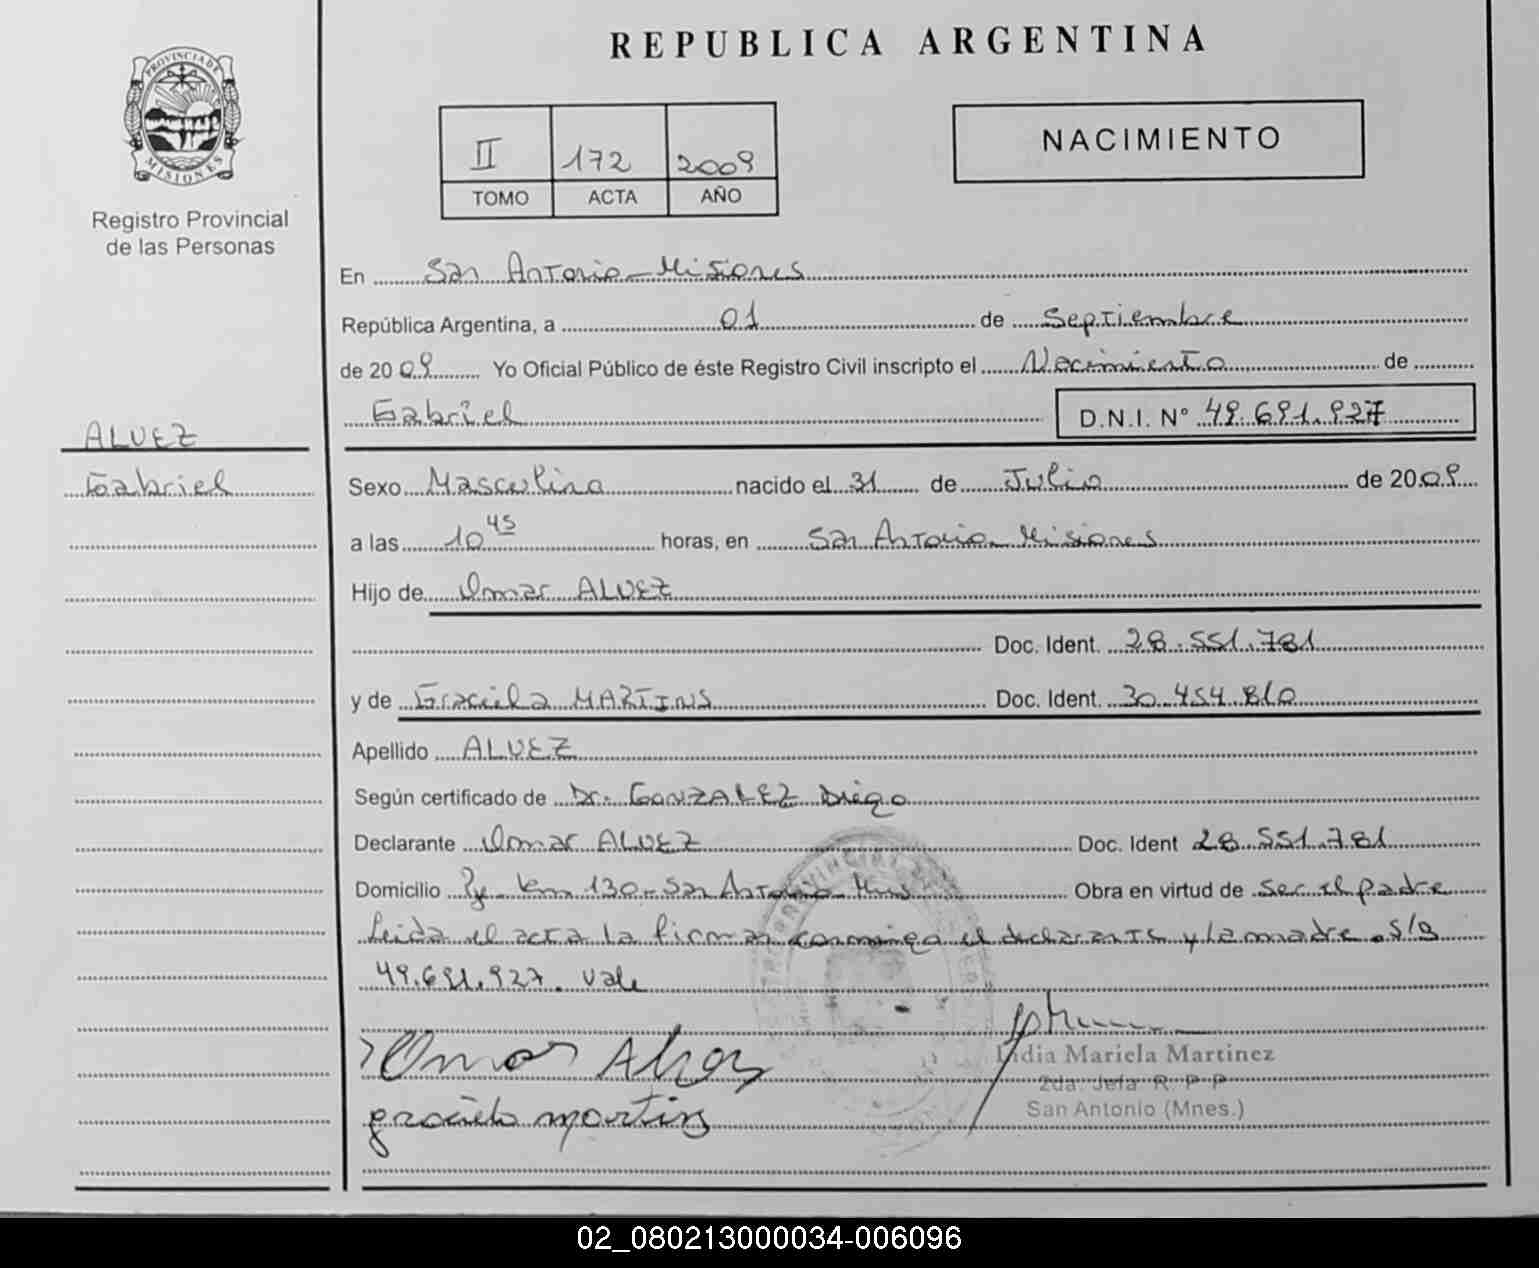 REPUBLICA ARGENTINA
PROVINCIA DE
MISIONES
Registro Provincial
de las Personas
II 172 2009
TOMO ACTA AÑO
NACIMIENTO
En San Antonio - Misiones
República Argentina, a 01 de Septiembre
de 2009 Yo Oficial Público de éste Registro Civil inscripto el Nacimiento de
Gabriel D.N.I. N° 49.691.927
ALVEZ
Gabriel
Sexo Masculino nacido el 31 de Julio de 2009
a las 10 45 horas, en San Antonio - Misiones
Hijo de Omar ALVEZ
Doc. Ident. 28.551.781
y de Graciela MARTINS Doc. Ident. 30.454.810
Apellido ALVEZ
Según certificado de Dr. GONZALEZ Diego
Declarante Omar ALVEZ Doc. Ident 28.551.781
Domicilio Km 130 - San Antonio - Mnes Obra en virtud de ser el padre
Leida el acta la firman conmigo el declarante y la madre. S/B
49.691.927. Vale
Omar Alvez
graciela martins
Lidia Mariela Martinez
2da. Jefa R. P. P
San Antonio (Mnes.)
02_080213000034-006096